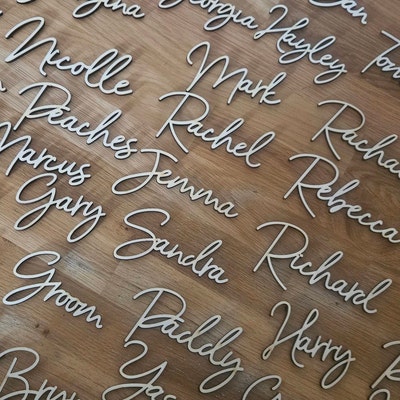 Georgia
Hayley
Nicolle
Mark
Peaches
Rachel
Marcus
Jemma
Rebecca
Gary
Sandra
Richard
Groom
Paddy
Harry